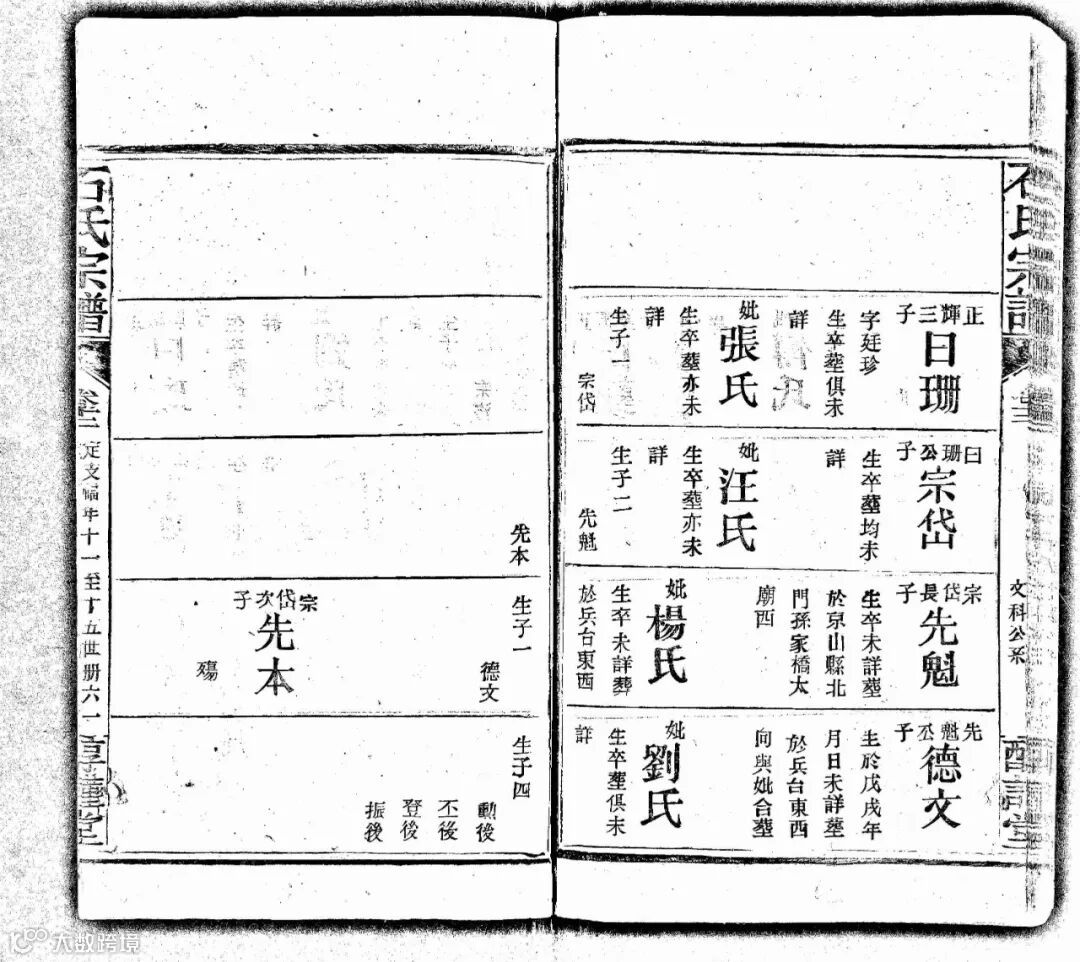 石氏宗譜
卷三
文科公系
正輝三子
日珊
字廷珍
生卒塟俱未
詳
妣
張氏
生卒塟亦未
詳
生子一
宗岱
曰珊公子
宗岱
生卒塟均未
詳
妣
汪氏
生卒塟亦未
詳
生子二
先魁
先本
宗岱長子
先魁
生卒未詳塟
於京山縣北
門孫家橋太
廟西
妣
楊氏
生卒未詳葬
於兵台東西
生子一
德文
宗岱次子
先本
殤
先魁公子
德文
生於戊戌年
月日未詳塟
於兵台東西
向與妣合塟
妣
劉氏
生卒塟俱未
詳
生子四
動後
丕後
登後
振後
石氏宗譜
卷三
十一至十五世
册六一
大数跨境